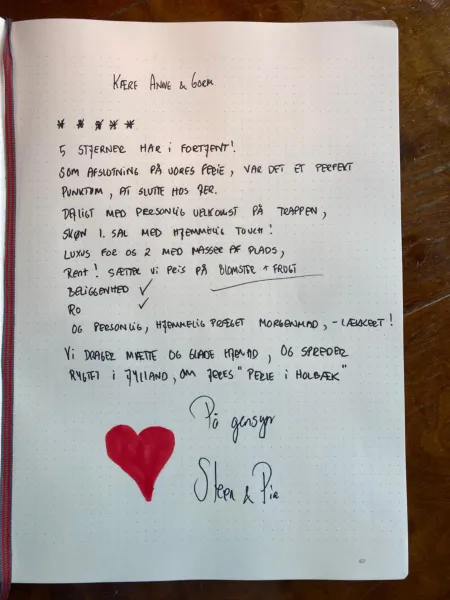 KÆRE ANNE & GORM
* * * * *
5 STJERNER HAR I FORTJENT!
SOM AFSLUTNING PÅ VORES FERIE, VAR DET ET PERFEKT
PUNKTUM, AT SLUTTE HOS JER.
DEJLIGT MED PERSONLIG VELKOMST PÅ TRAPPEN,
SKØN 1. SAL MED HJEMMELIG TOUCH!
LUXUS FOR OS 2 MED MASSER AF PLADS,
RENT! SÆTTER VI PRIS PÅ BLOMSTER + FRUGT
BELIGGENHED ✓
RO ✓
OG PERSONLIG, HJEMMELIG PRÆGET MORGENMAD, - LÆKKERT!
VI DRAGER MÆTTE OG GLADE HJEMAD, OG SPREDER
RYGTET I JYLLAND, OM JERES "PERLE I HOLBÆK"
På gensyn
Steen & Pia